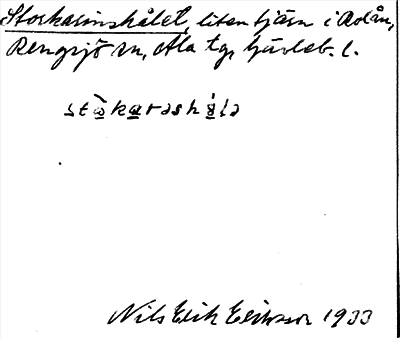 Storkarinshålet, liten tjärn i Roån,
Rengsjö sn, Ala tg, Gävleb. l.
Nils Erik Eriksson 1933